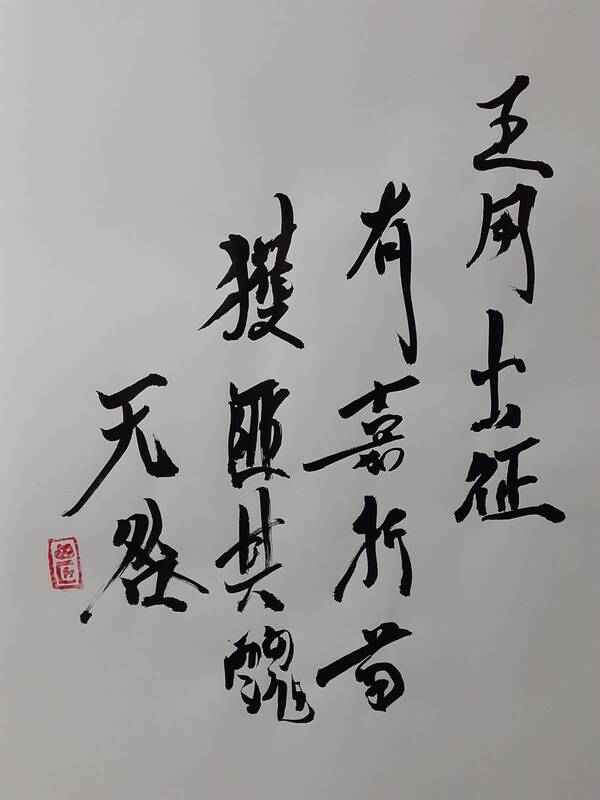 王用出征
有嘉折首
獲匪其醜
无咎